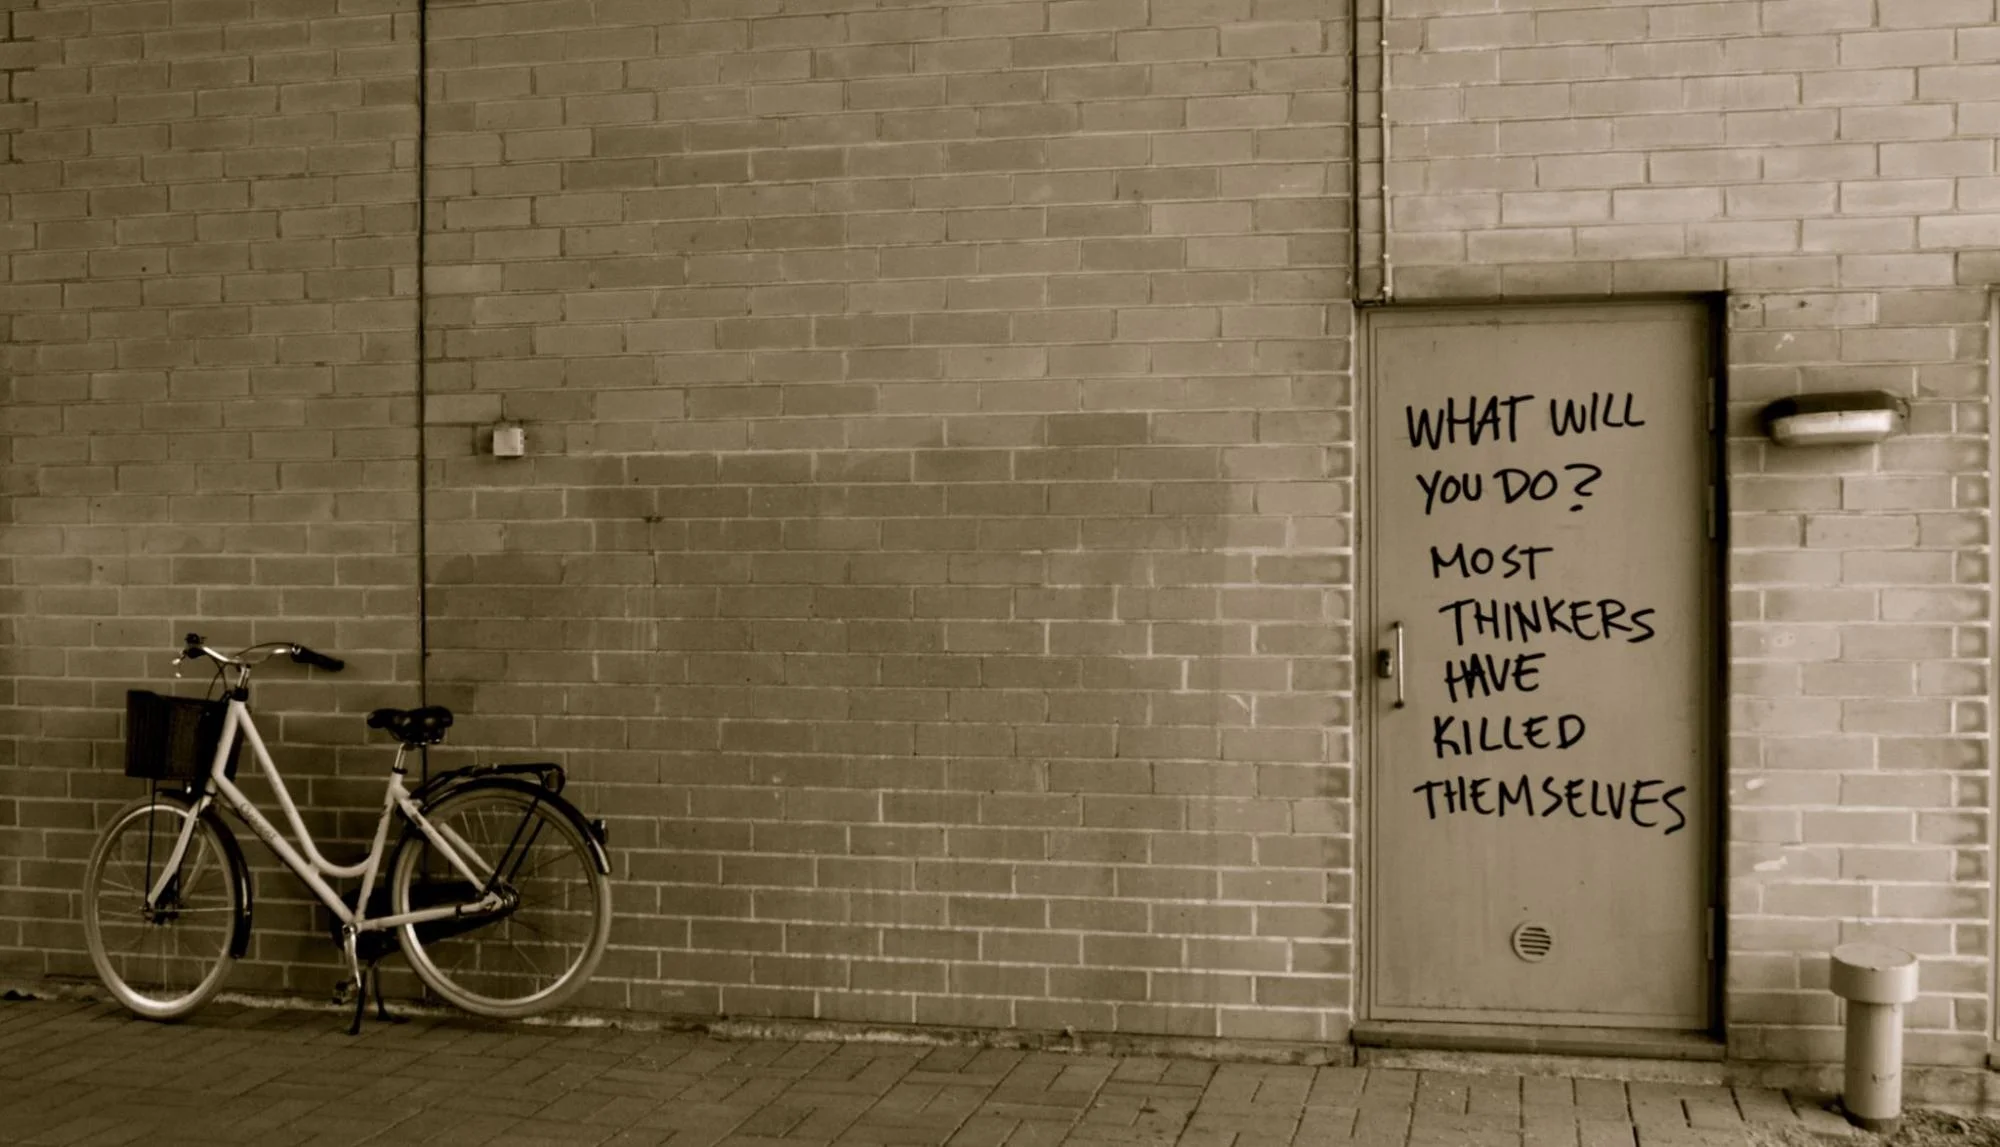 WHAT WILL
YOU DO?
MOST
THINKERS
HAVE
KILLED
THEMSELVES